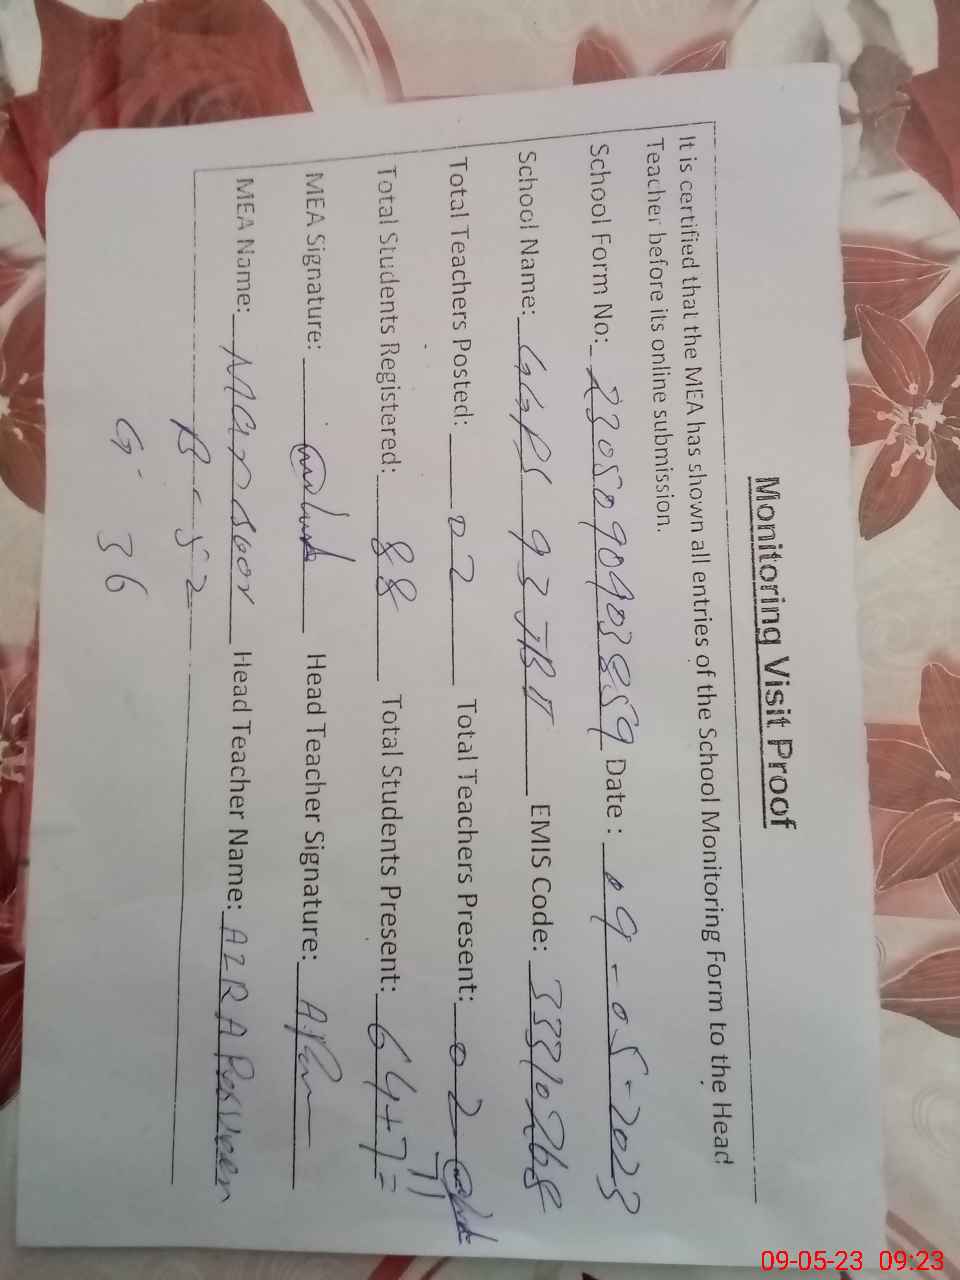 Monitoring Visit Proof
It is certified that the MEA has shown all entries of the School Monitoring Form to the Head
Teacher before its online submission.
School Form No: 2305090903859 Date : 09-05-2023
School Name: GGPS 93 JB II EMIS Code: 33310268
Total Teachers Posted: 02 Total Teachers Present: 02
Total Students Registered: 88 Total Students Present: 64+7= 71
MEA Signature: Head Teacher Signature:
MEA Name: Mansoor Head Teacher Name: AZRA Parveen
B - 52
G - 36
09-05-23 09:23